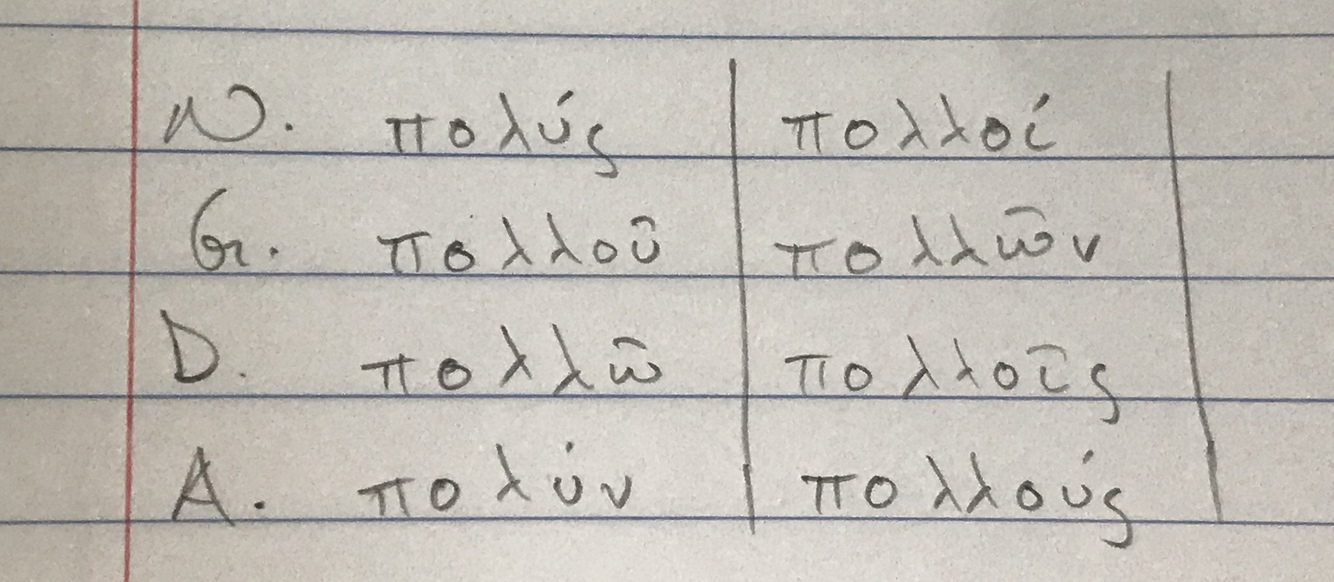 N. πολύς πολλοί
G. πολλοῦ πολλῶν
D. πολλῶ πολλοῖς
A. πολύν πολλούς